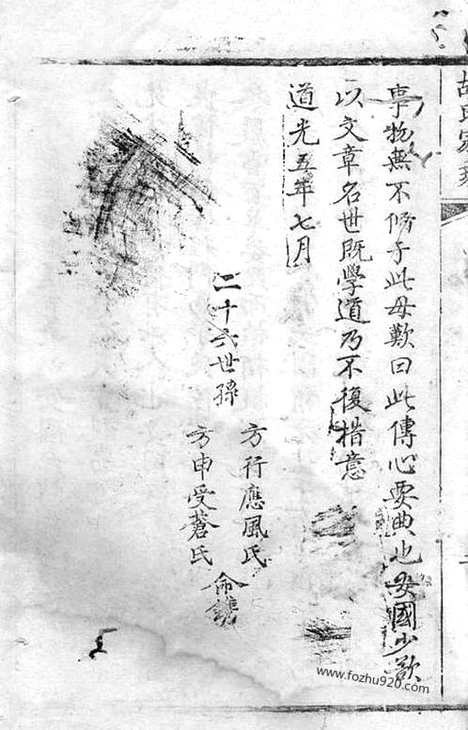 胡氏家
事物無不俻于此毋歎曰此傳心要典也安國少欲
以文章名世既學道乃不復措意
道光五年七月
二十六世孫
方行應風氏
方申受蒼氏
命鐫
www.fozhu920.com